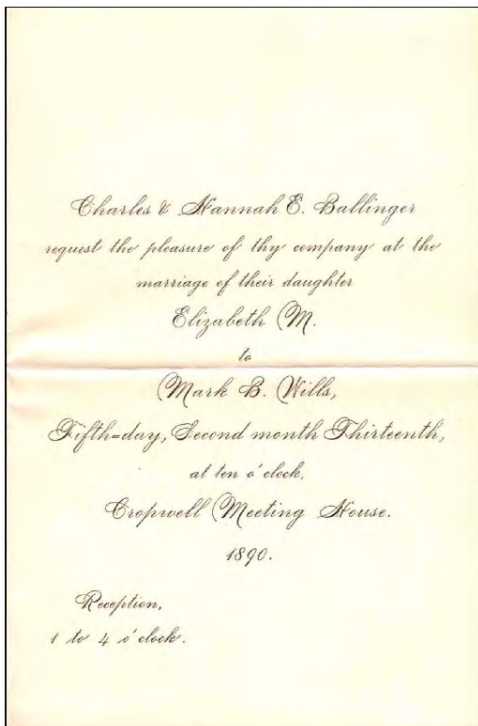 Charles & Hannah E. Ballinger
request the pleasure of thy company at the
marriage of their daughter
Elizabeth M.
to
Mark B. Wills,
Fifth=day, Second month Thirteenth,
at ten o'clock,
Cropwell Meeting House.
1890.
Reception,
1 to 4 o'clock.